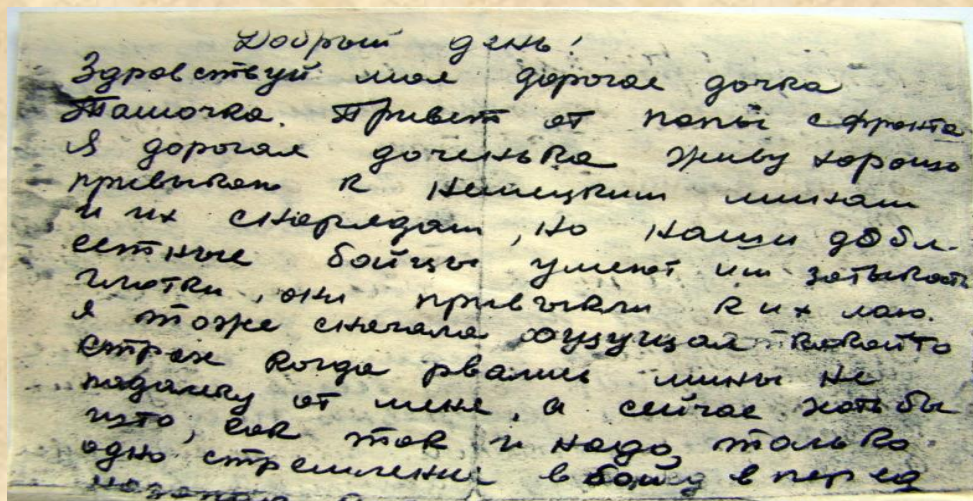 Добрый день!
Здравствуй моя дорогая дочка
Тамочка. Привет от папы с фронта
Я дорогая доченька живу хорошо
привыкаю к немецким минам
и их снарядам, но наши добл-
естные бойцы умеют им затыкать
глотки, они привыкли к их лаю.
я тоже сначала ощущал какойто
страх когда рвались мины не
подалеку от меня, а сейчас хотьбы
что, как так и надо, только
одно стремление в бой, вперед